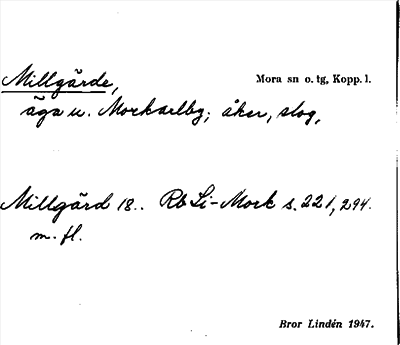 Millgärde, Mora sn o. tg, Kopp. l.
äga u. Morkarlby; åker, slog,
Millgärd 18.. Rb Li-Mork s. 221, 294.
m. fl.
Bror Lindén 1947.